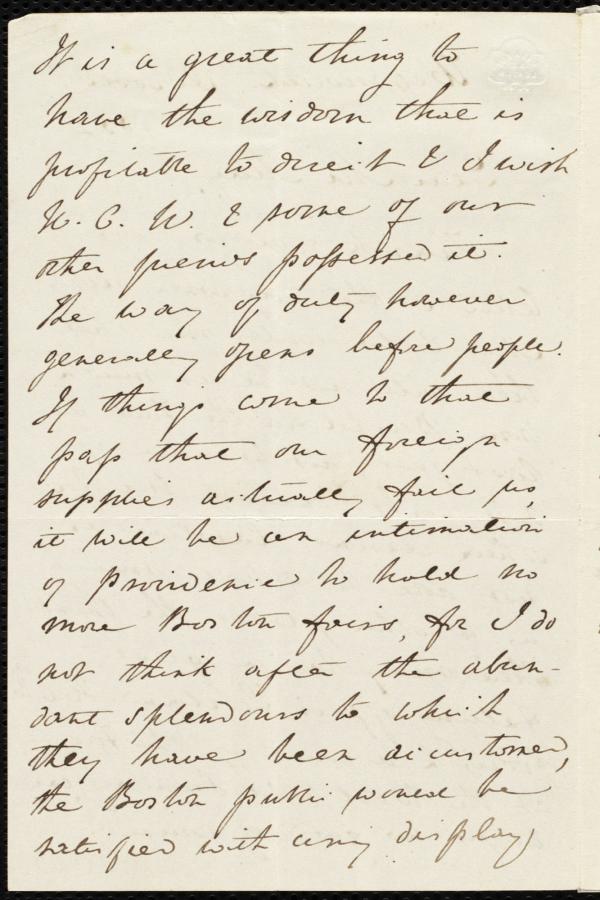 It is a great thing to
have the wisdom that is
profitable to direct & I wish
H. C. W. & some of our
other friends possessed it.
The way of duty however
generally opens before people.
If things come to that
pass that our foreign
supplies actually fail us,
it will be an intimation
of Providence to hold no
more Boston fairs, for I do
not think after the abun-
dant splendours to which
they have been accustomed,
the Boston public would be
satisfied with any display